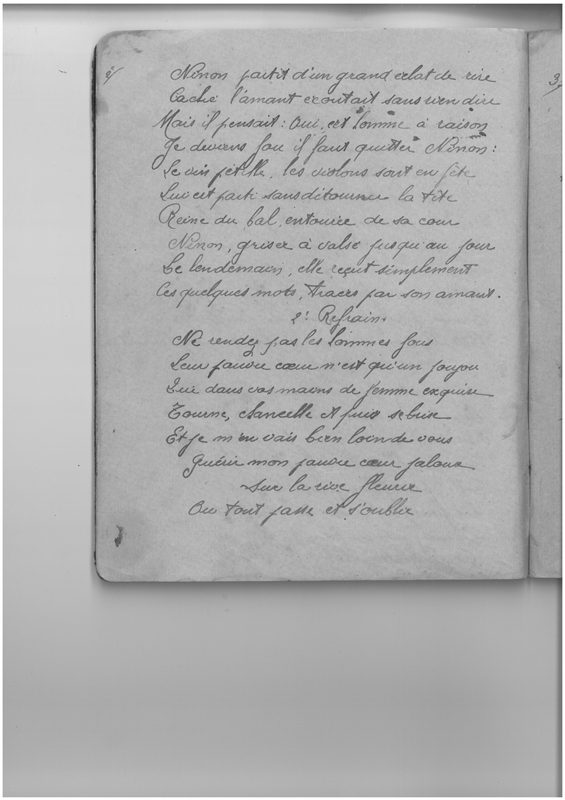 2/ Ninon partit d'un grand eclat de rire
Caché l'amant ecoutait sans rien dire
Mais il pensait : Oui, cet homme à raison
Je deviens fou il faut quitter Ninon :
Le vin pétille, les violons sont en fête
Lui est parti sans détourner la tête
Reine du bal, entourée de sa cour
Ninon, griser à valsé jusqu'au jour
Le lendemain, elle reçut simplement
Ces quelques mots, tracés par son amant.
2e Refrain.
Ne rendez pas les hommes fous
Leur pauvre cœur n'est qu'un joujou
Qui dans vos mains de femme exquise
Tourne, chancelle et puis se brise
Et je m'en vais bien loin de vous
Guérir mon pauvre cœur jaloux
Sur la rive fleurie
Ou tout passe et s'oublie
3/